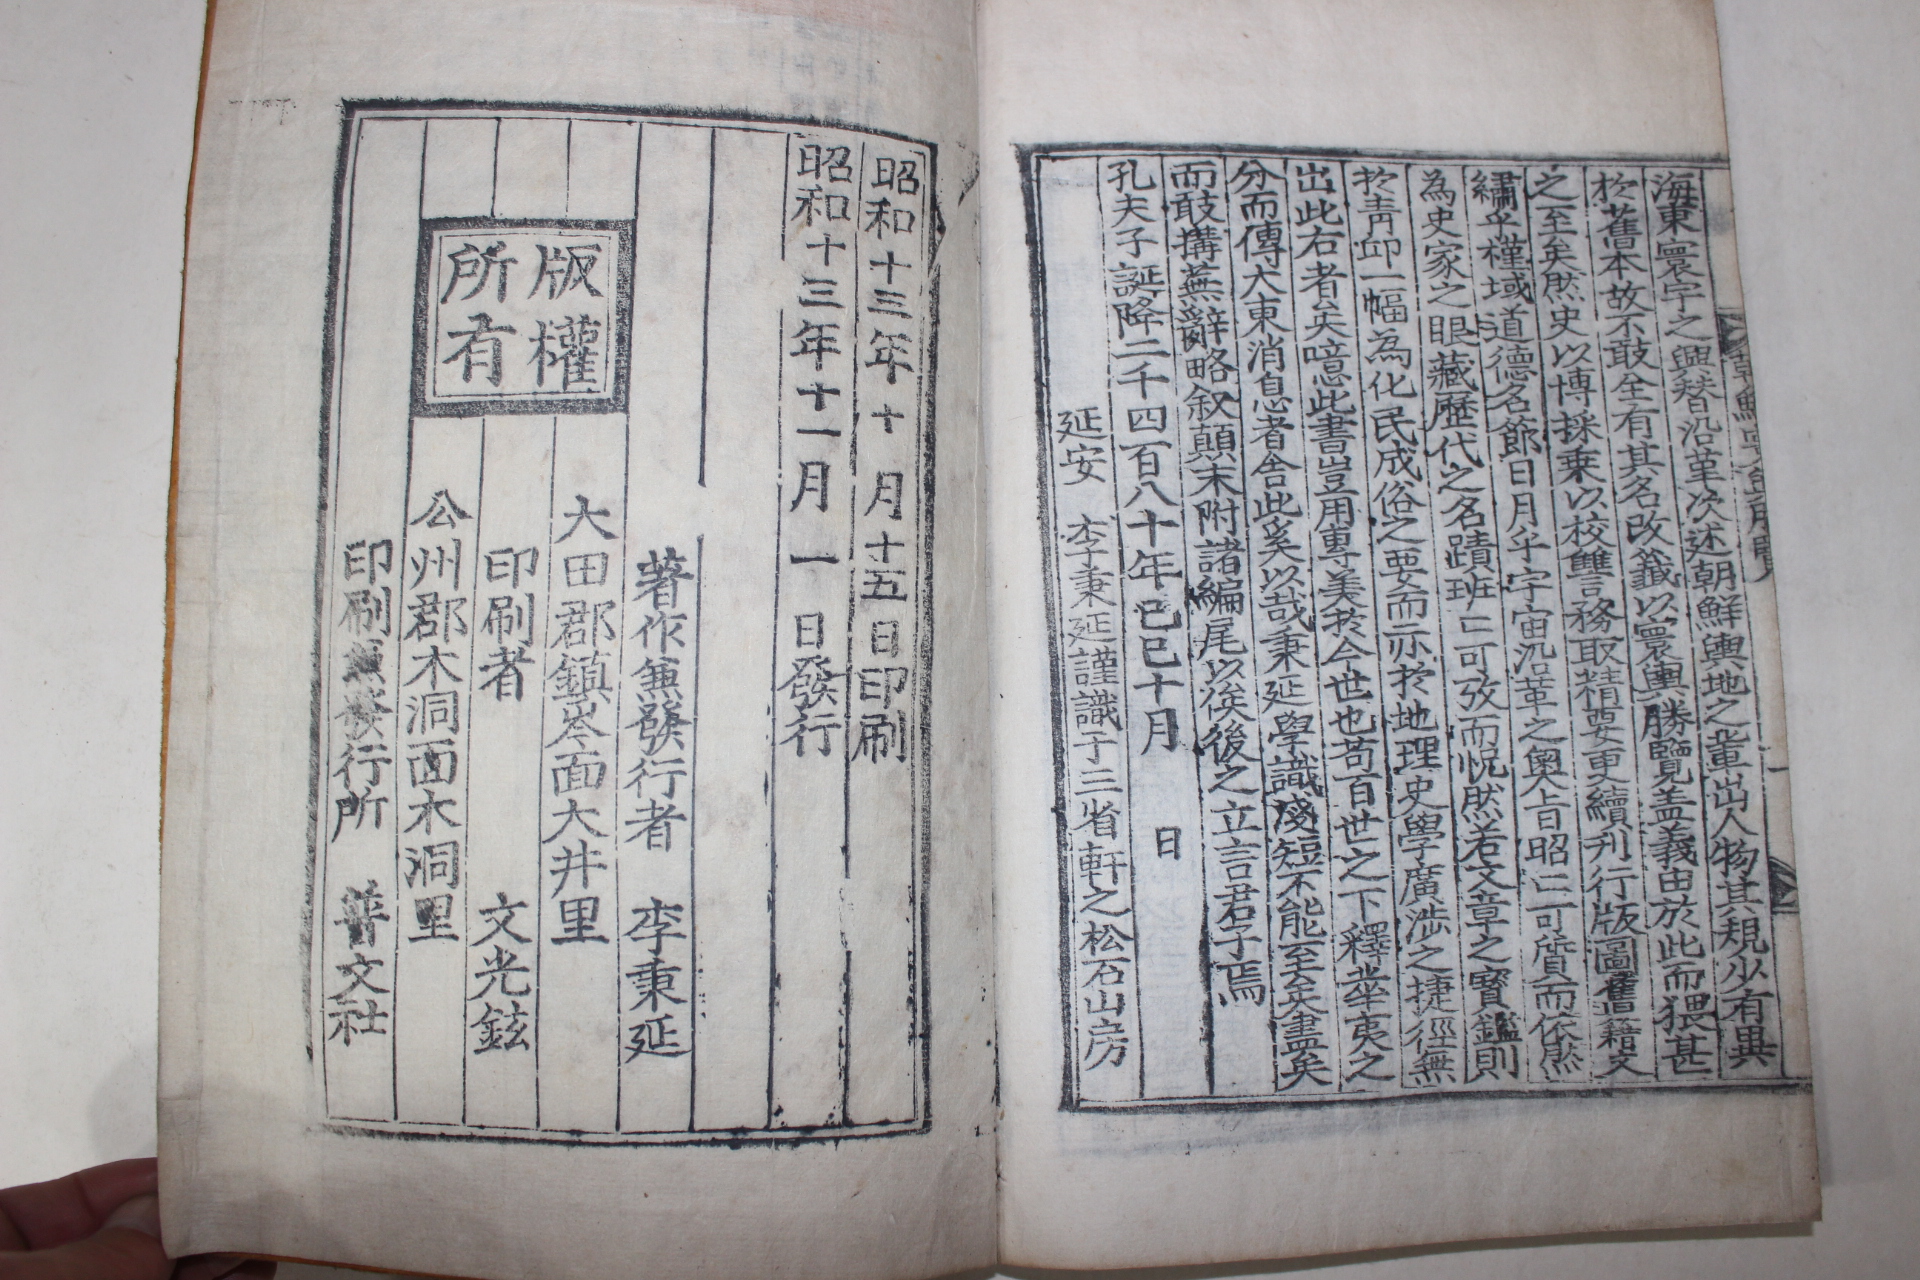 海東寰宇之興替沿革次述朝鮮輿地之輩出人物其規少有異
於舊本故不敢全有其名改籤以寰輿勝覽盖義由於此而猥甚
之至矣然史以博採乘以校讐言務取精要更續刋行版圖舊籍文
繡乎槿域道德名節日月乎宇宙沉革之奧旨昭〻可質而依然
為史家之眼藏歷代之名蹟班〻可攷而怳然若文章之寶鑑則
於靑邱一幅為化民成俗之要而亦於地理史學廣涉之捷徑無
出此右者矣噫此書豈用專美於今世也苟百世之下釋菲夷之
分而傳大東消息者舍此奚以哉秉延學識淺短不能至矣盡矣
而敢搆蕪辭略叙顛末附諸編尾以俟後之立言君子焉
孔夫子誕降二千四百八十年己巳十月 日
延安 李秉延謹識于三省軒之松石山房
昭和十三年十月十五日印刷
昭和十三年十一月一日發行
著作兼發行者 李秉延
大田郡鎭岑面大井里
版權
所有
印刷者 文光鉉
公州郡木洞面木洞里
印刷兼發行所 普文社